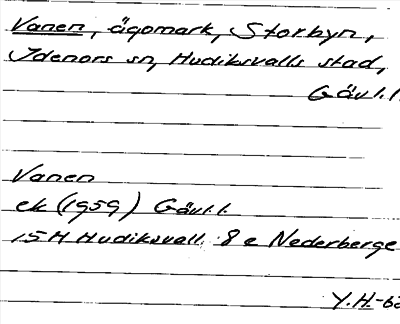 Vanen, ägomark, Storbyn,
Idenors sn, Hudiksvalls stad,
Gävl.l.
Vanen
ek (1959) Gävl.l.
15H Hudiksvall 8 e Nederberge
Y.H.-62